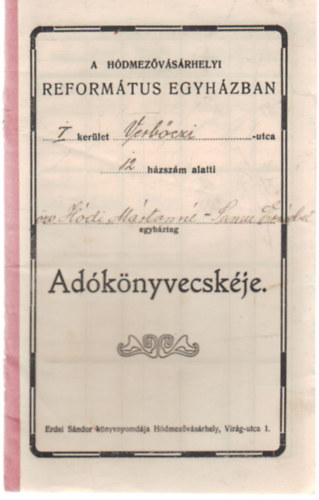 A HÓDMEZŐVÁSÁRHELYI
REFORMÁTUS EGYHÁZBAN
I kerület Verbőczi -utca
12 házszám alatti
özv. Hódi Mártonné -
egyháztag
Adókönyvecskéje.
Erdei Sándor könyvnyomdája Hódmezővásárhely, Virág-utca 1.